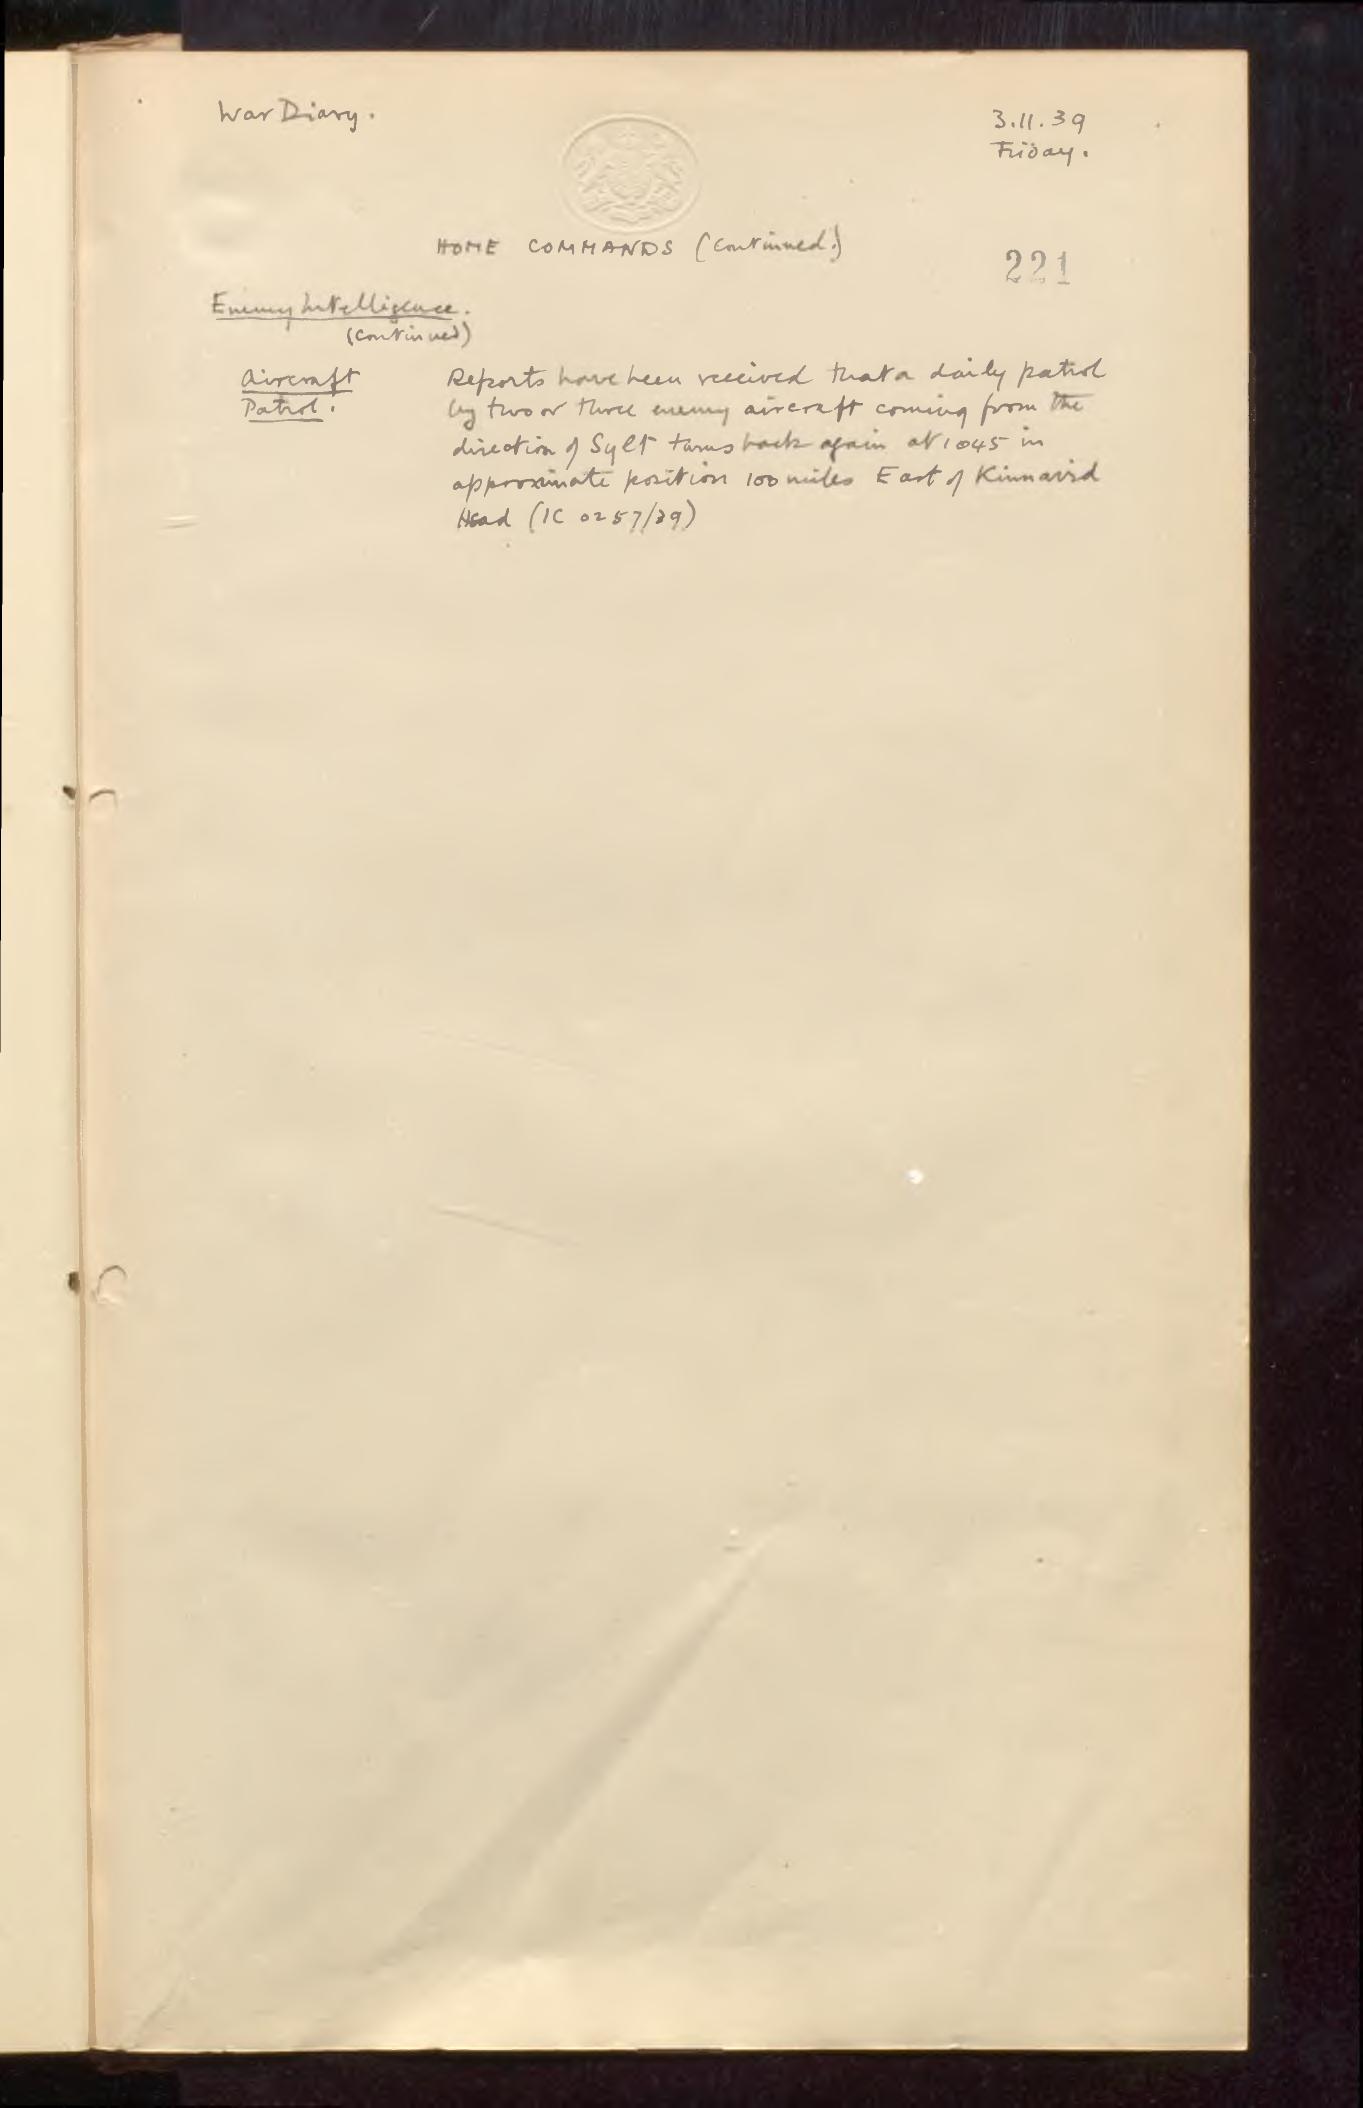 War Diary.
3.11.39
Friday.
HOME COMMANDS (Continued.)
221
Enemy Intelligence.
(Continued)
Aircraft
Patrol.
Reports have been received that a daily patrol
by two or three enemy aircraft coming from the
direction of Sylt turns back again at 1045 in
approximate position 100 miles East of Kinnaird
Head (IC 0257/39)